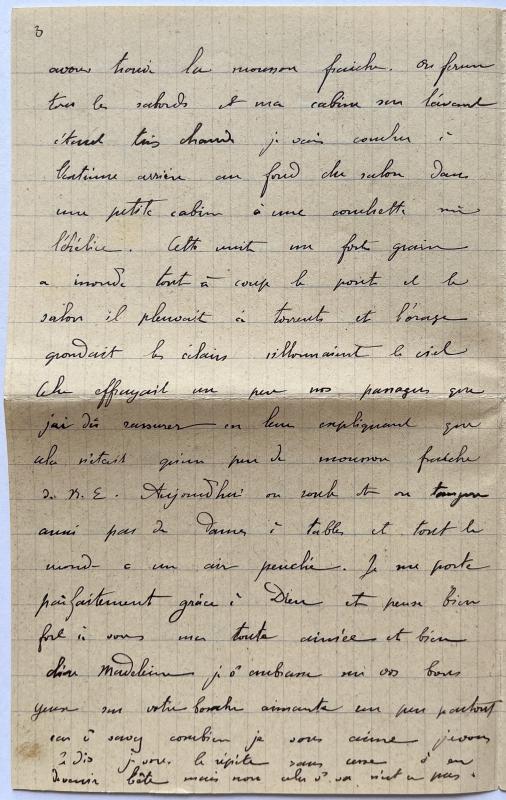 8
avons trouvé la mousson fraiche. On ferme
tous les sabords et ma cabine sur l'avant
étant très chaude je vais coucher à
l'extrême arrière au fond du salon dans
une petite cabine à une couchette sur
l'hélice. Cette nuit un fort grain
a inondé tout à coup le pont et le
salon il pleuvait à torrents et l'orage
grondait les éclairs sillonnaient le ciel
cela effrayait un peu nos passagers que
j'ai dû rassurer en leur expliquant que
cela n'était qu'un peu de mousson fraiche
de N.E. Aujourd'hui on roule et on tangue
aussi pas de dames à tables et tout le
monde a un air penché. Je me porte
parfaitement grâce à Dieu et pense bien
fort à vous ma toute aimée et bien
chère Madeleine je vous embrasse sur vos bons
yeux sur votre bouche aimante un peu partout
car vous savez combien je vous aime je vous
le dis je vous le répète sans cesse à en
devenir bête mais non cela n'est pas.